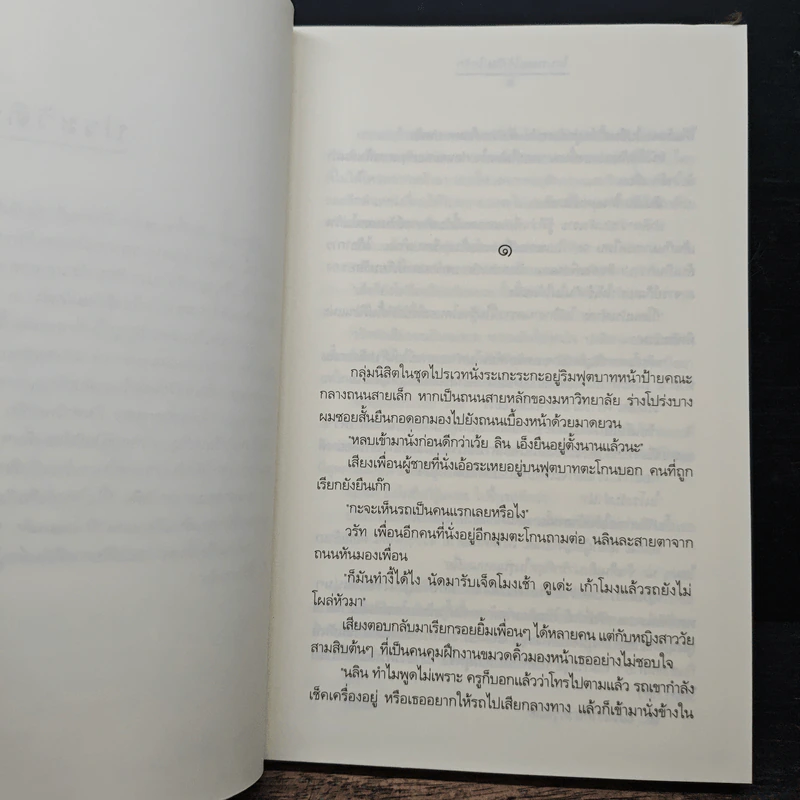 ๑
กลุ่มนิสิตในชุดไปรเวทนั่งระเกะระกะอยู่ริมฟุตบาทหน้าป้ายคณะ
กลางถนนสายเล็ก หากเป็นถนนสายหลักของมหาวิทยาลัย ร่างโปร่งบาง
ผมซอยสั้นยืนกอดอกมองไปยังถนนเบื้องหน้าด้วยมาดยวน
"หลบเข้ามานั่งก่อนดีกว่าเว้ย ลิน เอ็งยืนอยู่ตั้งนานแล้วนะ"
เสียงเพื่อนผู้ชายที่นั่งเอ้อระเหยอยู่บนฟุตบาทตะโกนบอก คนที่ถูก
เรียกยังยืนเก๊ก
"กะจะเห็นรถเป็นคนแรกเลยหรือไง"
วรัท เพื่อนอีกคนที่นั่งอยู่อีกมุมตะโกนถามต่อ นลินละสายตาจาก
ถนนหันมองเพื่อน
"ก็มันทำงี้ได้ไง นัดมารับเจ็ดโมงเช้า ดูเด่ะ เก้าโมงแล้วรถยังไม่
โผล่หัวมา"
เสียงตอบกลับมาเรียกรอยยิ้มเพื่อนๆ ได้หลายคน แต่กับหญิงสาววัย
สามสิบต้นๆ ที่เป็นคนคุมฝึกงานขมวดคิ้วมองหน้าเธออย่างไม่ชอบใจ
"นลิน ทำไมพูดไม่เพราะ ครูก็บอกแล้วว่าโทรไปตามแล้ว รถเขากำลัง
เช็คเครื่องอยู่ หรือเธออยากให้รถไปเสียกลางทาง แล้วก็เข้ามานั่งข้างใน